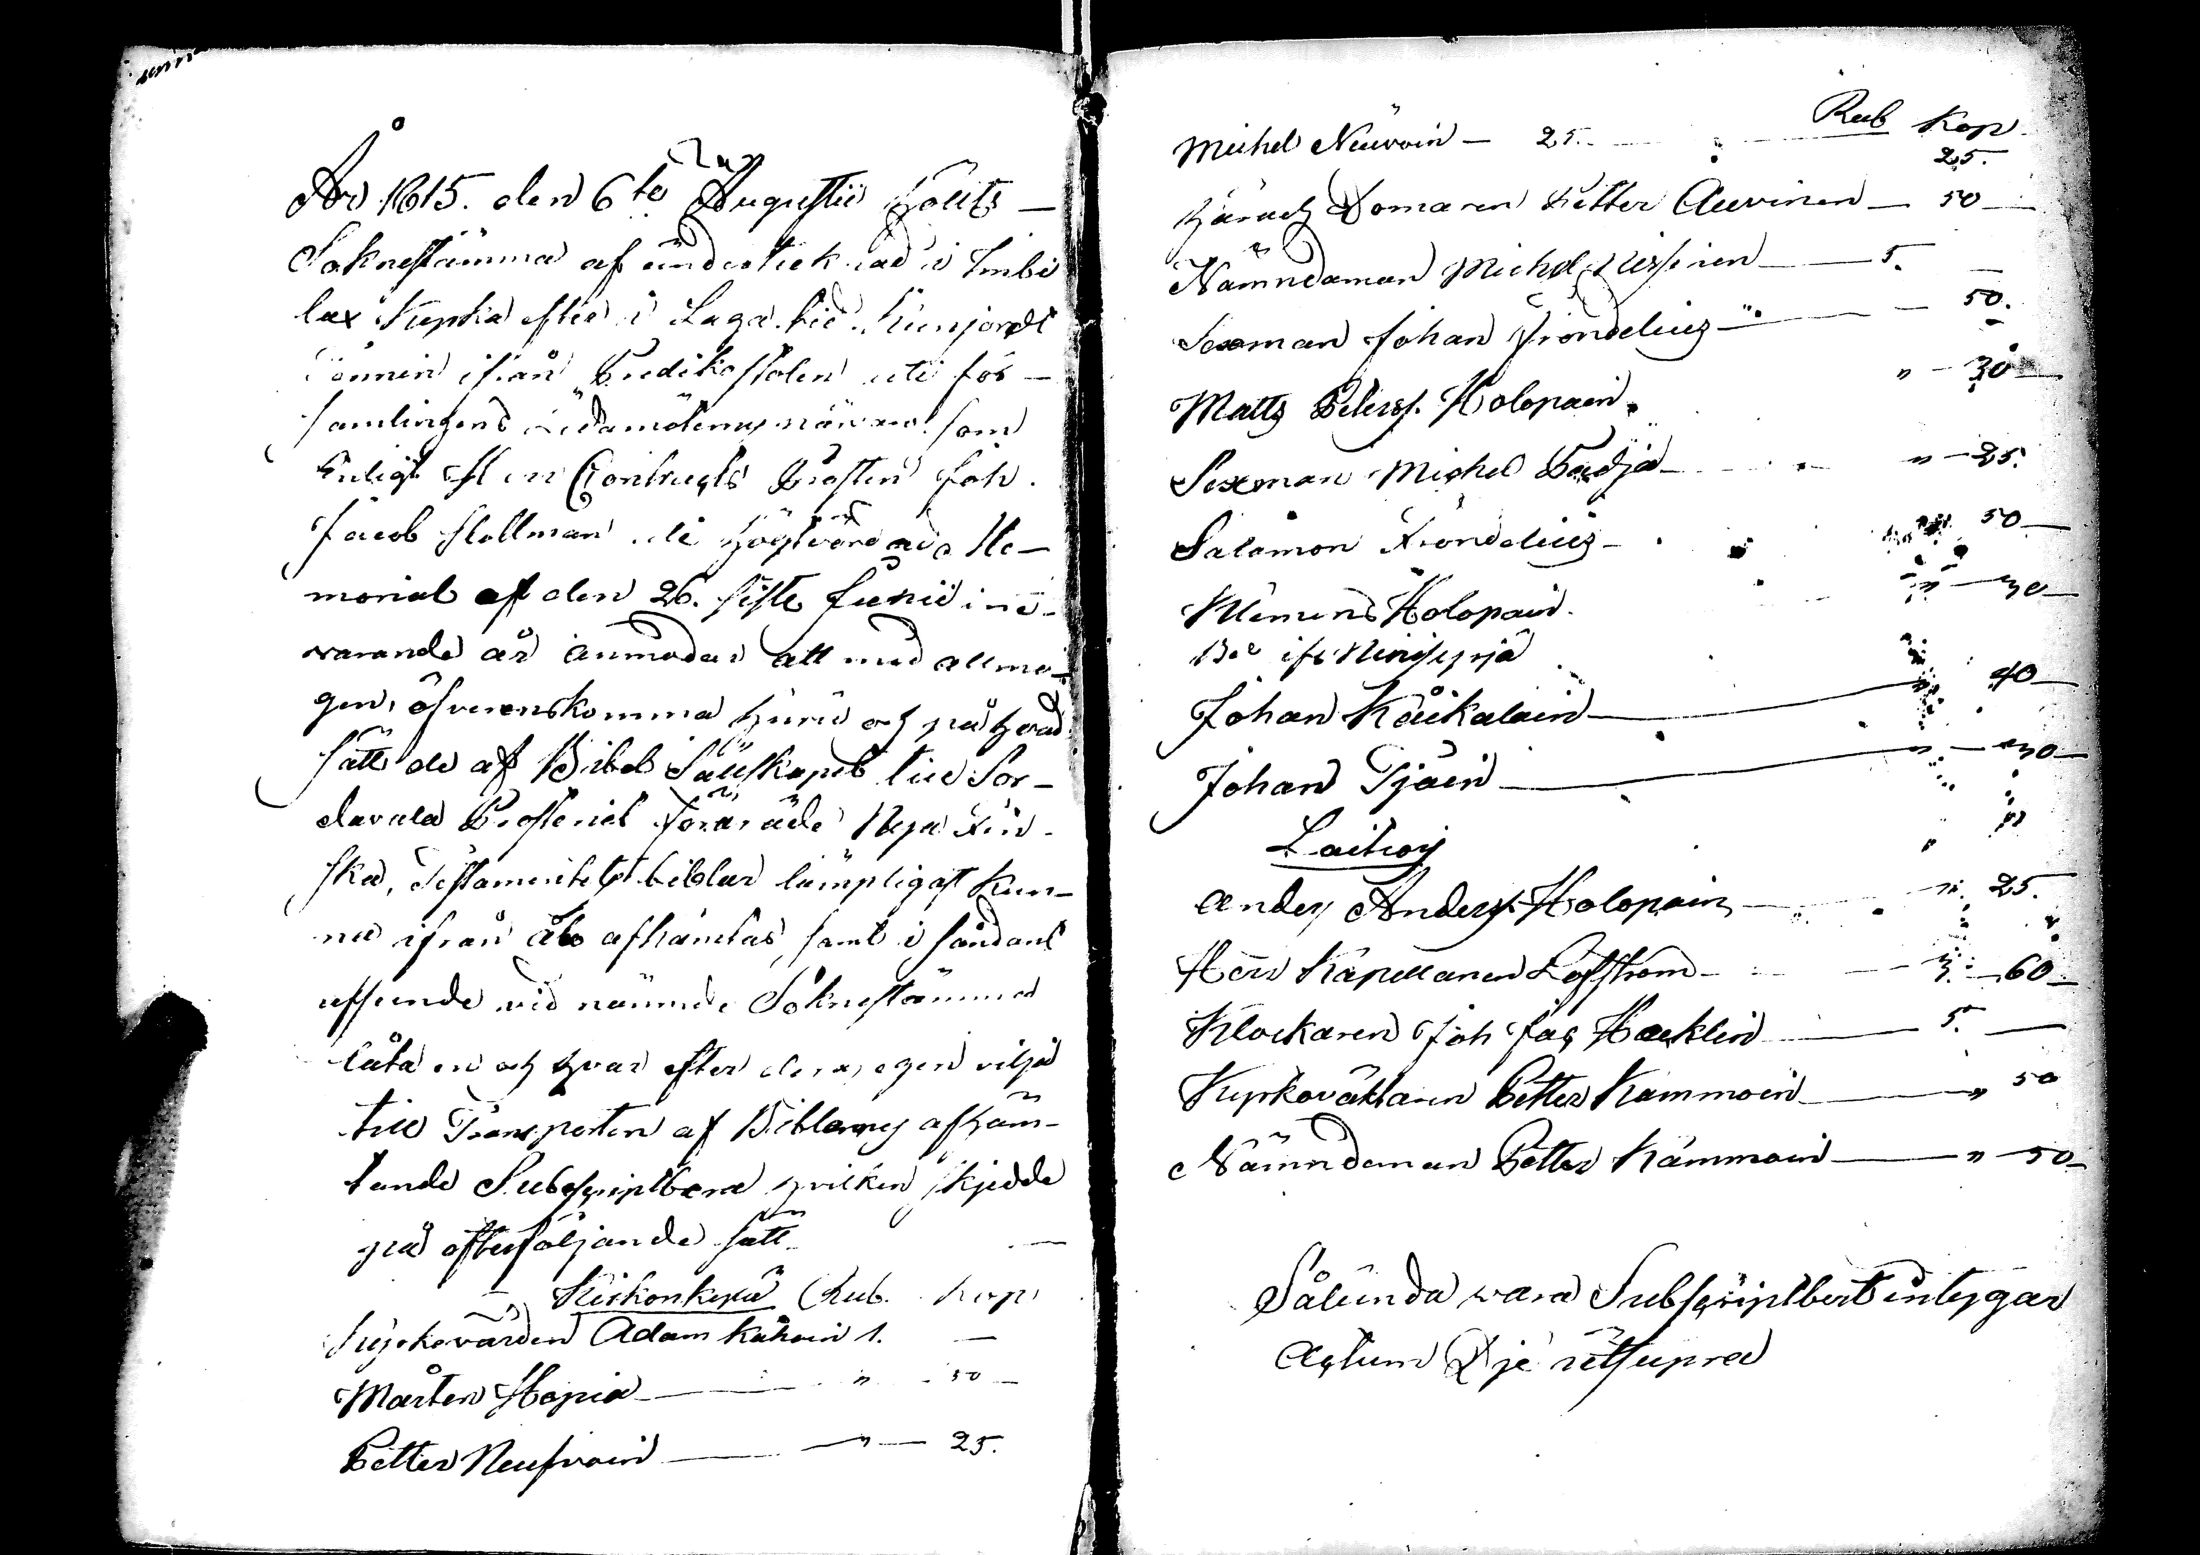 År 1815. den 6te Augustii hölts
Soknestämma af undertecknad i Imbi
lax Kyrka efter i Laga tid kunjordt
ifrån Predikostolen uti för-
samlingens ledamöters närvaro. som
Enligt Herr Contracts Prosten Joh.
Jacob Hollman Me-
morial af den 26. siste Junii inne-
varande år anmodas att med allmo-
gen, öfverenskomma huru och på hvad
sätt de af Bibel Sällskapet till Sor-
davala Prosteriet förärade Nya Fin-
ska, Testamentets biblar lämpligast kun-
na ifrån Åbo afhämtas, samt i sådant
afseende vid nämnde Soknestämma
låta en och hvar efter deras egen vilja
till Transporten af Biblarnes afhäm-
tande Subscriptbera hvilken skjedde
på efterföljande sätt
Rub. Kop
Kyrkovärden Adam Kähöin 1. —
Mårten Hapia — " — 50 —
Petter Neufvoin — " — 25.
Rub Kop
Michel Neuvoin — 25. — " 25.
Härads Domaren Petter Auvinen — 50 —
Nämndaman Michel — 5. —
Sexman Johan Frondelius — " — 50.
Matts Peterss. Holopain. " — 30 —
Sexman Michel Padja — " — 25.
Salomon Frondelius — 50 —
Klemens Holopain. " — 30 —
Johan Käukalain — " 40 —
Johan Tjäin — " — 30 —
Laitioj
Anders Anderss. Holopain — " 25.
Herr Kapellanen Löfström — 3. — 60 —
Klockaren Joh Jac Hæcklin — 5. —
Kyrkoväktaren Petter Kammoin — " 50
Nämndeman Petter Kämmoin — " — 50 —
Sålunda vara Subscriptbert intygar
Actum Die ut supra